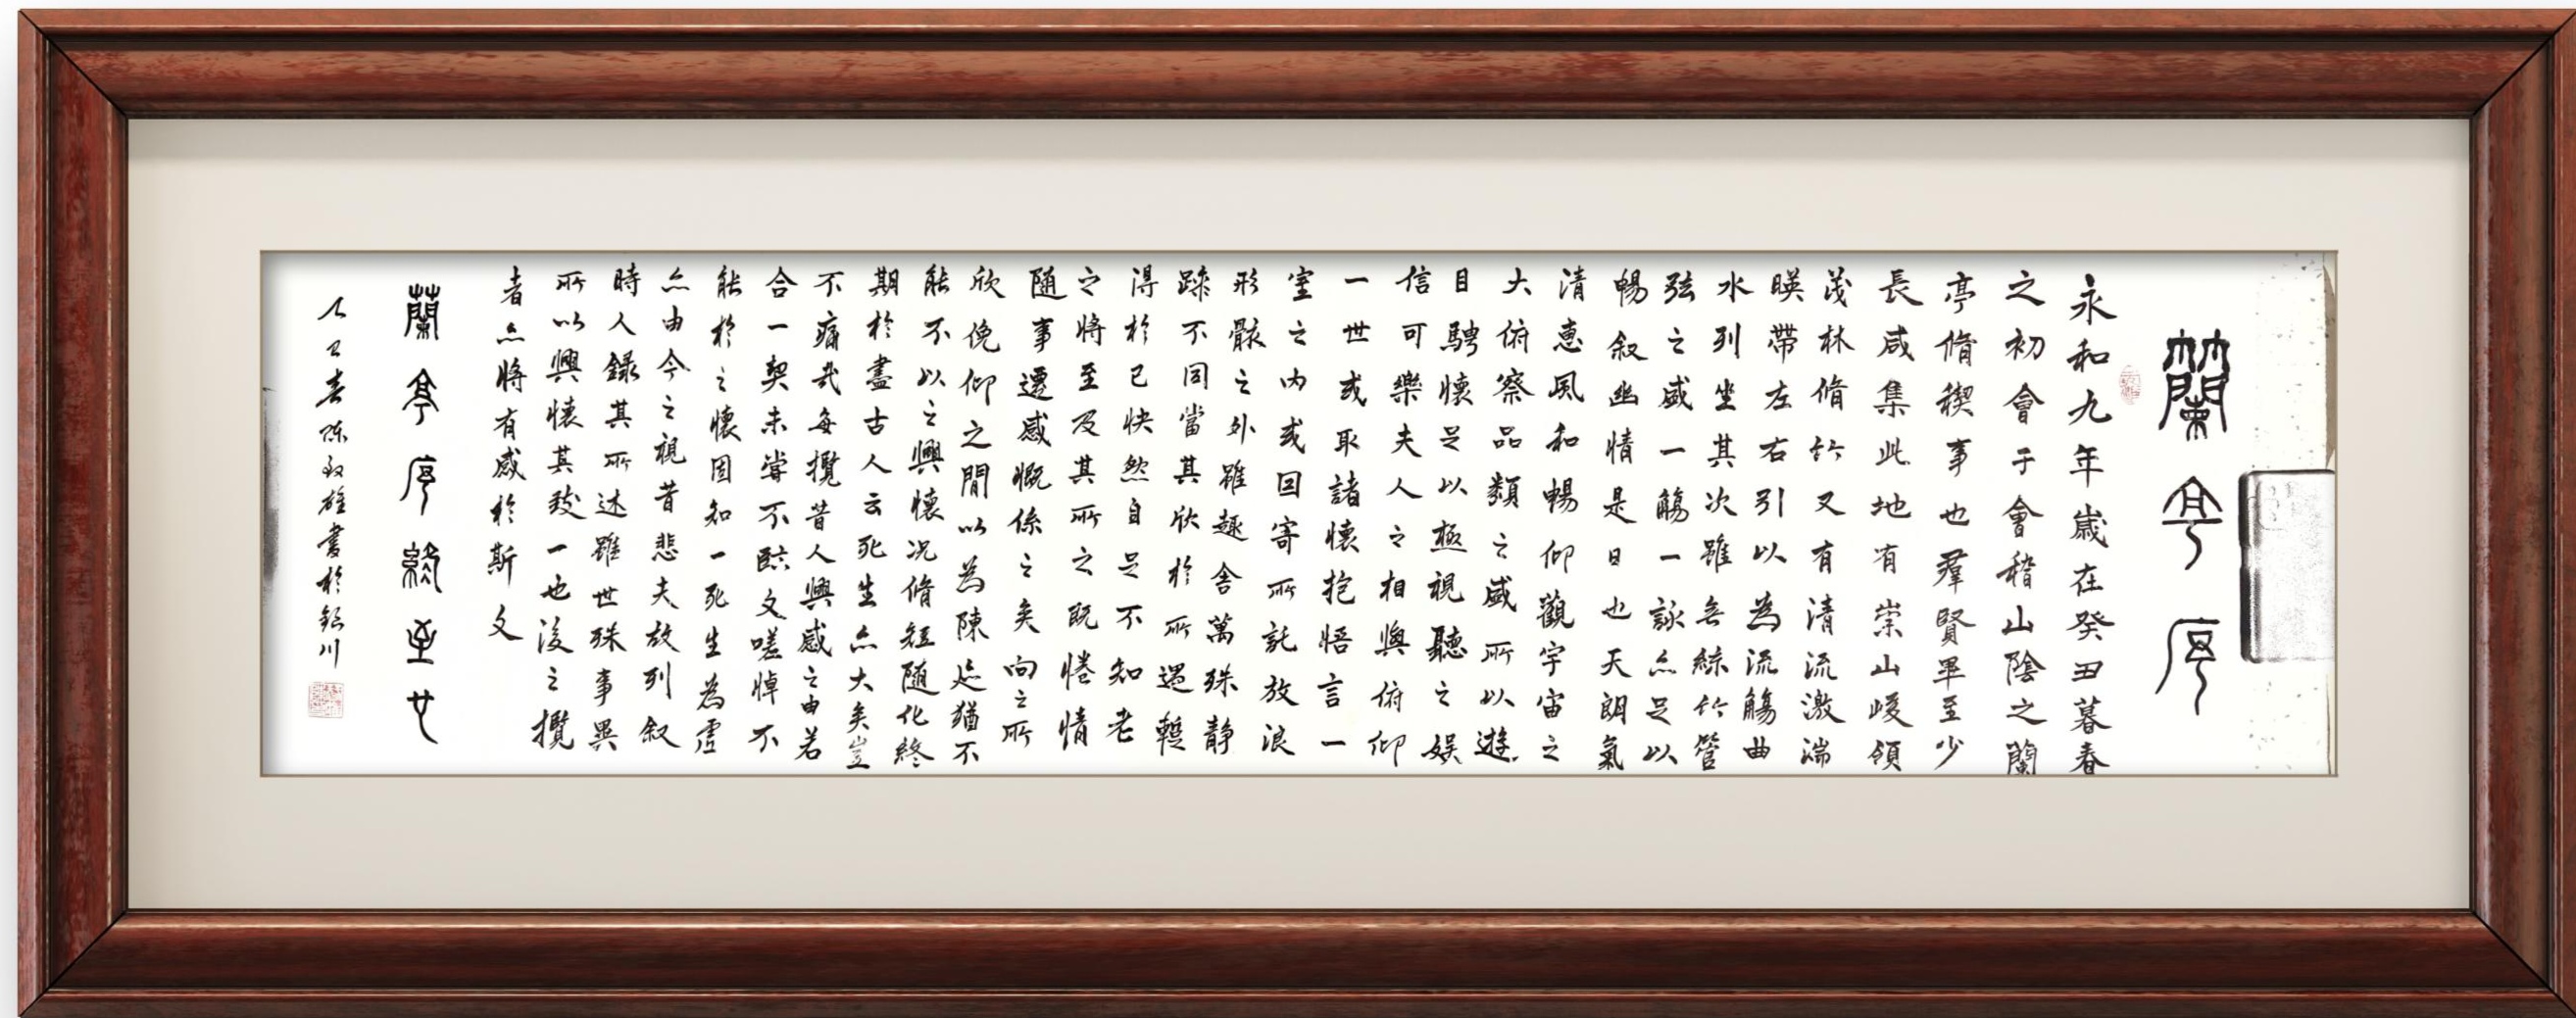 蘭亭序
永和九年歲在癸丑暮春
之初會于會稽山陰之蘭
亭脩稧事也羣賢畢至少
長咸集此地有崇山峻領
茂林脩竹又有清流激湍
暎帶左右引以為流觴曲
水列坐其次雖無絲竹管
弦之盛一觴一詠亦足以
暢叙幽情是日也天朗氣
清惠風和暢仰觀宇宙之
大俯察品類之盛所以遊
目騁懷足以極視聽之娛
信可樂夫人之相與俯仰
一世或取諸懷抱悟言一
室之內或因寄所託放浪
形骸之外雖趣舍萬殊靜
躁不同當其欣於所遇暫
得於己快然自足不知老
之將至及其所之既惓情
隨事遷感慨係之矣向之所
欣俛仰之間以為陳迹猶不
能不以之興懷況脩短隨化終
期於盡古人云死生亦大矣豈
不痛哉每攬昔人興感之由若
合一契未嘗不臨文嗟悼不
能於之懷固知一死生為虛
亦由今之視昔悲夫故列叙
時人錄其所述雖世殊事異
所以興懷其致一也後之攬
者亦將有感於斯文
蘭亭序終
春陈雄書於銀川